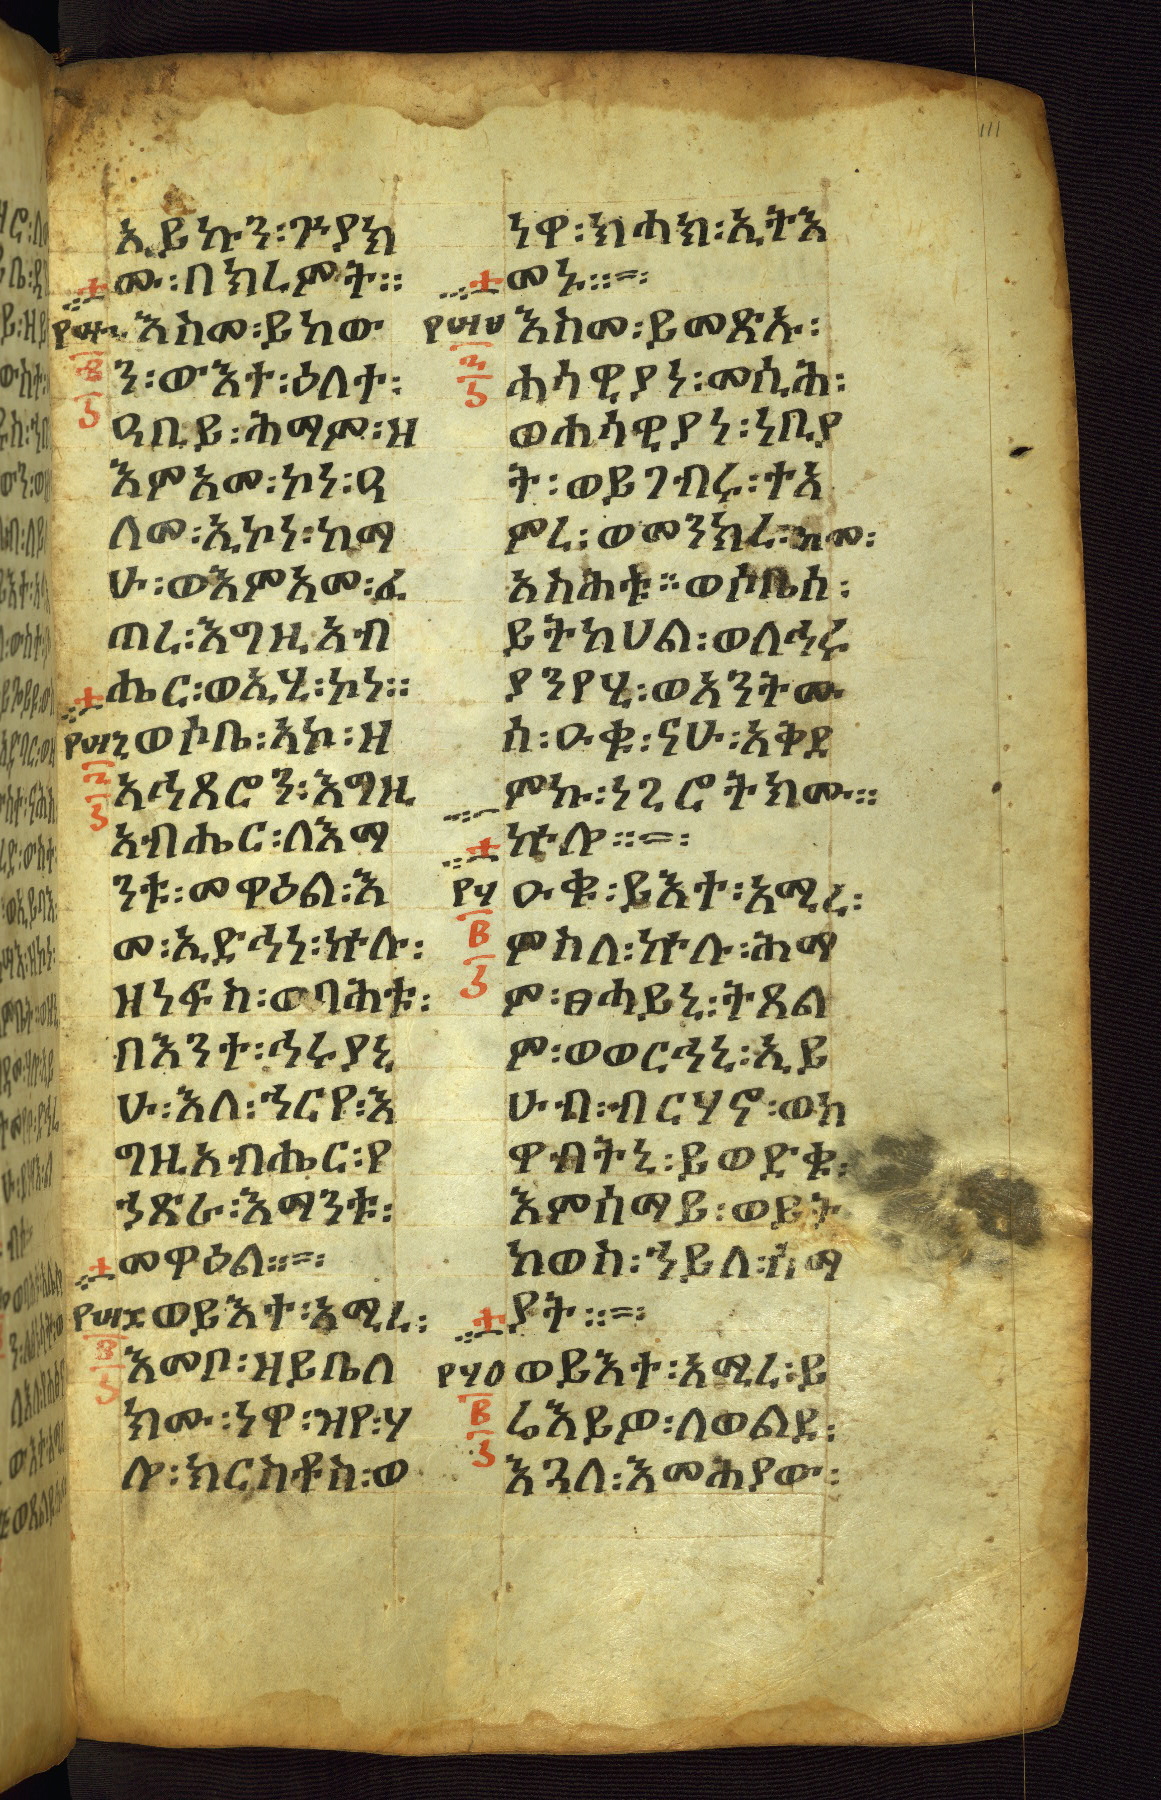 111
ኢይኩን፡ጕያክ
ሙ፡በክረምት፡፡
እስመ፡ይከው
ን፡ውእተ፡ዕለተ፡
ዓቢይ፡ሕማም፡ዘ
እምአመ፡ኮነ፡ዓ
ለመ፡ኢኮነ፡ከማ
ሁ፡ወእምአመ፡ፈ
ጠረ፡እግዚአብ
ሔር፡ወኢሂ፡ኮነ፡፡
ወሶቤ፡አኮ፡ዘ
አኅጸሮን፡እግዚ
አብሔር፡ለእማ
ንቱ፡መዋዕል፡እ
መ፡ኢድኅነ፡ኵሉ፡
ዘነፍስ፡ወባሕቱ፡
በእንተ፡ኅሩያኒ
ሁ፡እለ፡ኀርየ፡እ
ግዚአብሔር፡የ
ኃጽራ፡እማንቱ፡
መዋዕል፡፡=፡
ወይእተ፡አሚረ፡
እመቦ፡ዘይቤለ
ክሙ፡ነዋ፡ዝየ፡ሃ
ሎ፡ክርስቶስ፡ወ
ነዋ፡ክሓክ፡ኢትእ
መኑ፡፡=፡
እስመ፡ይመጽኡ፡
ሐሳዊያነ፡መሲሕ፡
ወሐሳዊያነ፡ነቢያ
ት፡ወይገብሩ፡ተአ
ምረ፡ወመንክረ፡ከመ፡
አስሕቱ፡፡ወሶቤሰ፡
ይትከሀል፡ወለኅሩ
ያንየሂ፡ወአንትሙ
ሰ፡ዑቁ፡ናሁ፡አቅደ
ምኩ፡ነጊሮትክሙ፡፡
ኵሎ፡፡=፡
ዑቁ፡ይእተ፡አሚረ፡
ምስለ፡ኵሉ፡ሕማ
ም፡ፀሓይኒ፡ትጸል
ም፡ወወርኅኒ፡ኢይ
ሁብ፡ብርሃኖ፡ወከ
ዋብትኒ፡ይወድቁ፡
እምሰማይ፡ወይት
ከወስ፡ኀይለ፡ሰማ
ያት፡፡=፡
ወይእተ፡አሚረ፡ይ
ሬእይዎ፡ለወልደ፡
እጓለ፡እመሕያው፡